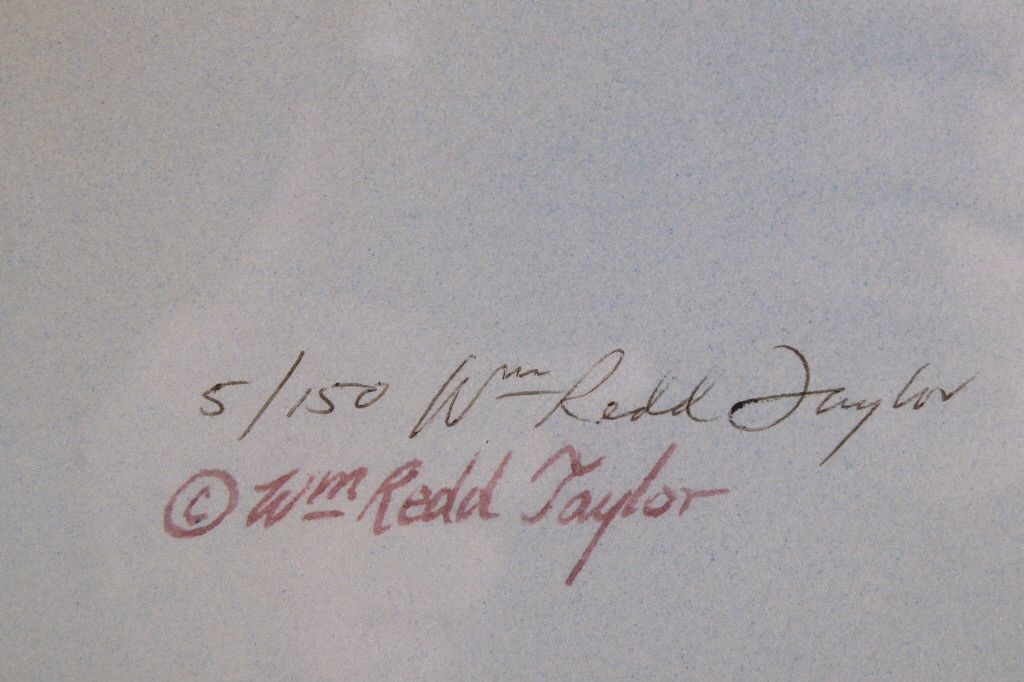 5/150 Wm Redd Taylor
© Wm Redd Taylor